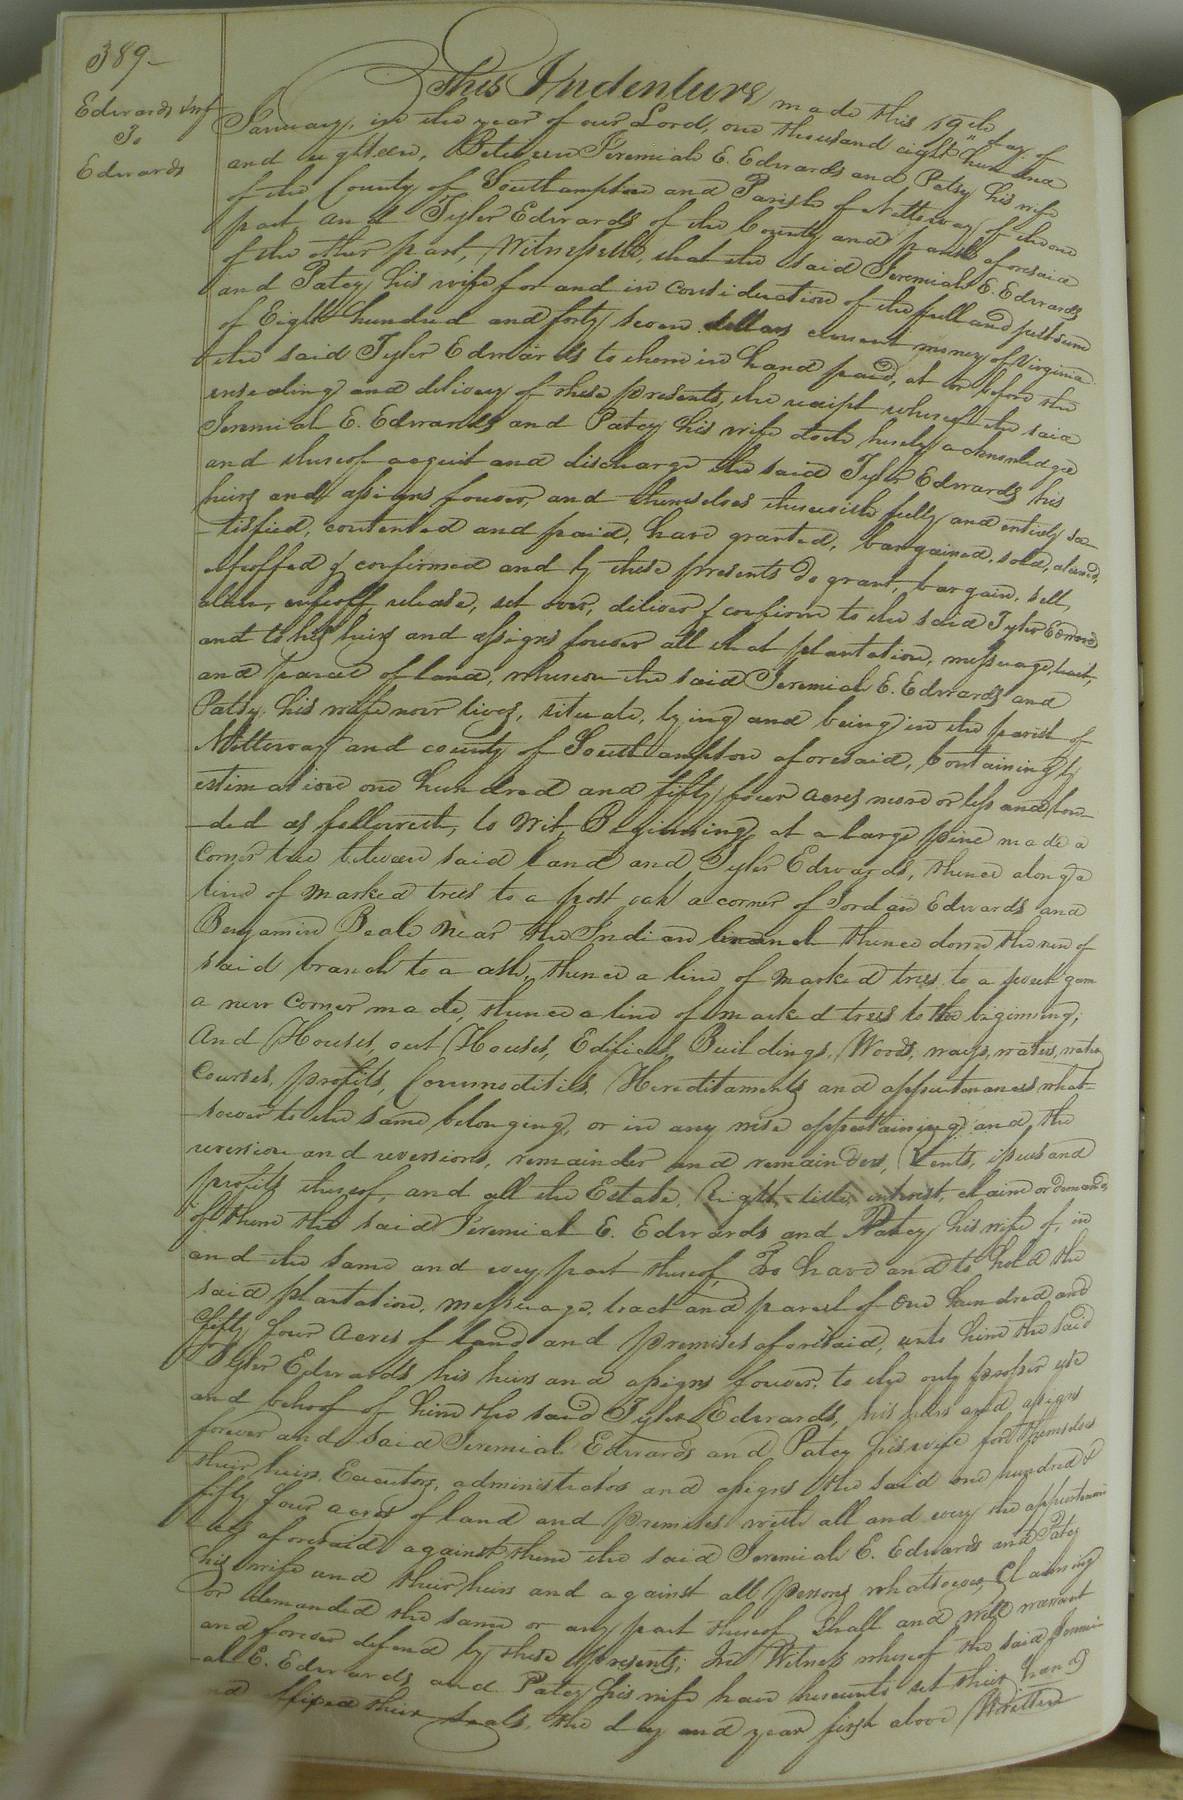 389-
Edwards &wf
To
Edwards
This Indenture made this 19th day of
January, in the year of our Lord, one thousand eight hundred
and eighteen, Between Jeremiah E. Edwards and Patsy his wife
of the County of Southampton and Parish of Nottoway of the one
part and Tyler Edwards of the County and parish aforesaid
of the other part, Witnesseth, that the said Jeremiah E. Edwards
and Patsy his wife for and in consideration of the full and just sum
of Eight hundred and forty seven dollars current money of Virginia
the said Tyler Edwards to them in hand paid, at or before the
ensealing and delivery of these presents, the receipt whereof the said
Jeremiah E. Edwards and Patsy his wife doth hereby acknowledge
and thereof acquit and discharge the said Tyler Edwards his
heirs and assigns forever, and themselves therewith fully and entirely sa-
tisfied, contented and paid, have granted, bargained, sold, aliened,
enfeoffed & confirmed and by these presents do grant, bargain, sell,
alien, enfeoff, release, set over, deliver & confirm to the said Tyler Edwards
and to his heirs and assigns forever all that plantation, messuage, tract,
and parcel of land, whereon the said Jeremiah E. Edwards and
Patsy his wife now lives, situate, lying and being in the parish of
Nottoway and county of Southampton aforesaid, Containing by
estimation one hundred and fifty four acres more or less and boun-
ded as followeth, to Wit, Beginning at a large pine made a
corner tree between said land and Tyler Edwards, thence along a
line of marked trees to a post oak a corner of Jordan Edwards and
Benjamin Beale near the Indian branch thence down the run of
said branch to a ash, thence a line of marked trees to a sweet gum
a new corner made, thence a line of marked trees to the beginning,
And Houses, out Houses, Edifices, Buildings, Woods, ways, waters, water
Courses, profits, Commodities, Hereditaments and appurtenances what-
soever to the same belonging, or in any wise appertaining and the
reversion and reversions, remainder and remainders, Rents, issues and
profits thereof, and all the Estate, Right, title, interest, claim or demand
of them the said Jeremiah E. Edwards and Patsy his wife of, in
and the same and every part thereof, To have and to hold the
said plantation, messuage, tract and parcel of one hundred and
fifty four acres of land and premises aforesaid, unto him the said
Tyler Edwards his heirs and assigns forever, to the only proper use
and behoof of him the said Tyler Edwards, his heirs and assigns
forever and said Jeremiah Edwards and Patsy his wife for themselves
their heirs, Executors, administrators and assigns the said one hundred &
fifty four acres of land and premises with all and every the appurtenan-
ces aforesaid against them the said Jeremiah E. Edwards and Patsy
his wife and their heirs and against all persons whatsoever, Claiming
or demanded the same or any part thereof shall and will warrant
and forever defend by these presents; In Witness whereof the said Jeremi-
ah E. Edwards and Patsy his wife have hereunto set their hand
and affixed their seals, the day and year first above Written